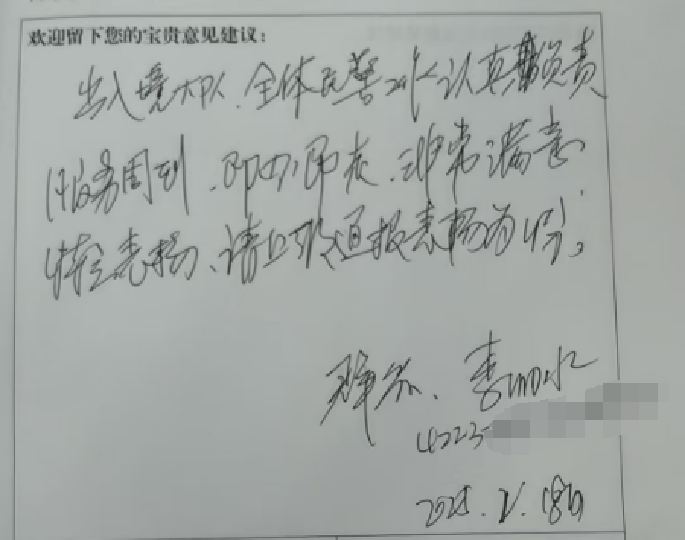 欢迎留下您的宝贵意见建议:
出入境大队、全体民警工作认真负责
服务周到、即办即取、非常满意
特表扬、请上级通报表扬为盼;
群众、李
4223
2025.2.18日